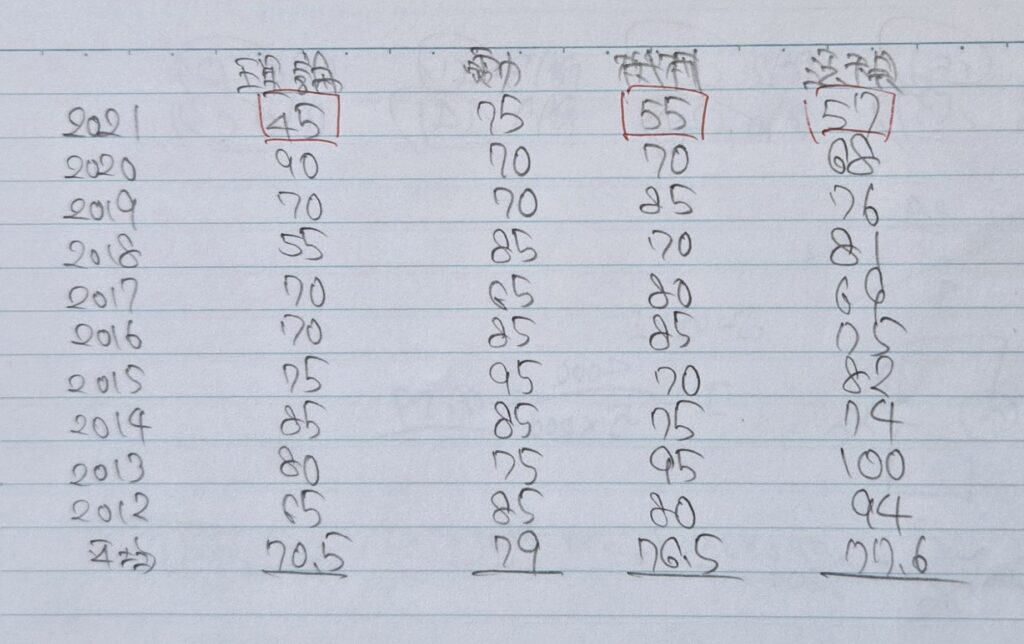 2021 45 75 55 57
2020 90 70 70 68
2019 70 70 85 76
2018 55 85 70 81
2017 70 65 80 69
2016 70 85 85 75
2015 75 95 70 82
2014 85 85 75 74
2013 80 75 95 100
2012 65 85 80 94
평균 70.5 79 76.5 77.6